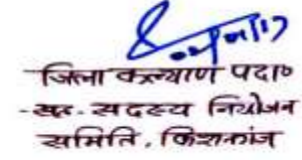 जिला कल्याण पदा०
-सह- सदस्य नियोजन
समिति, किशनगंज